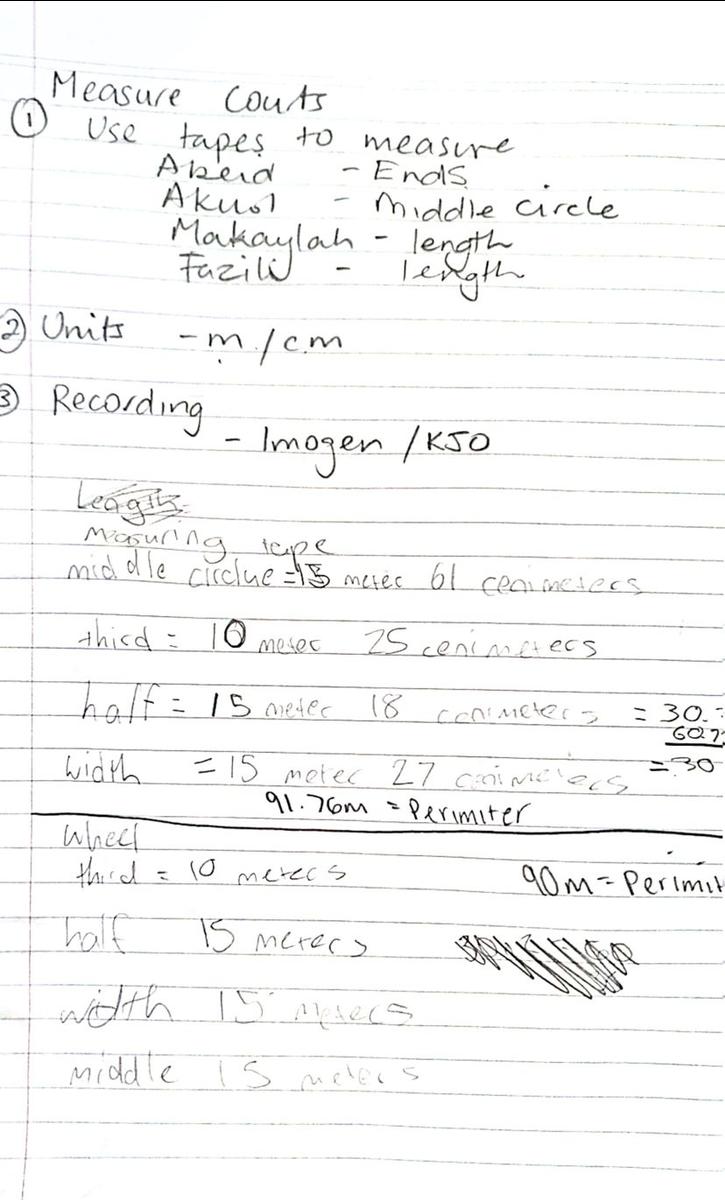 Measure Couts
① Use tapes to measure
Abeid - Ends
Akuol - Middle circle
Makaylah - length
Fazili - length
② Units - m/cm
③ Recording
- Imogen /KJO
Length
measuring tape
middle circlue = 15 meter 61 cenimeters
third = 10 meter 25 cenimeters
half = 15 meter 18 cenimeters = 30.
60.7
width = 15 meter 27 cenimeters = 30
91.76m = Perimiter
wheel
third = 10 meters 90m = Perimit
half 15 meters
width 15 meters
middle 15 meters